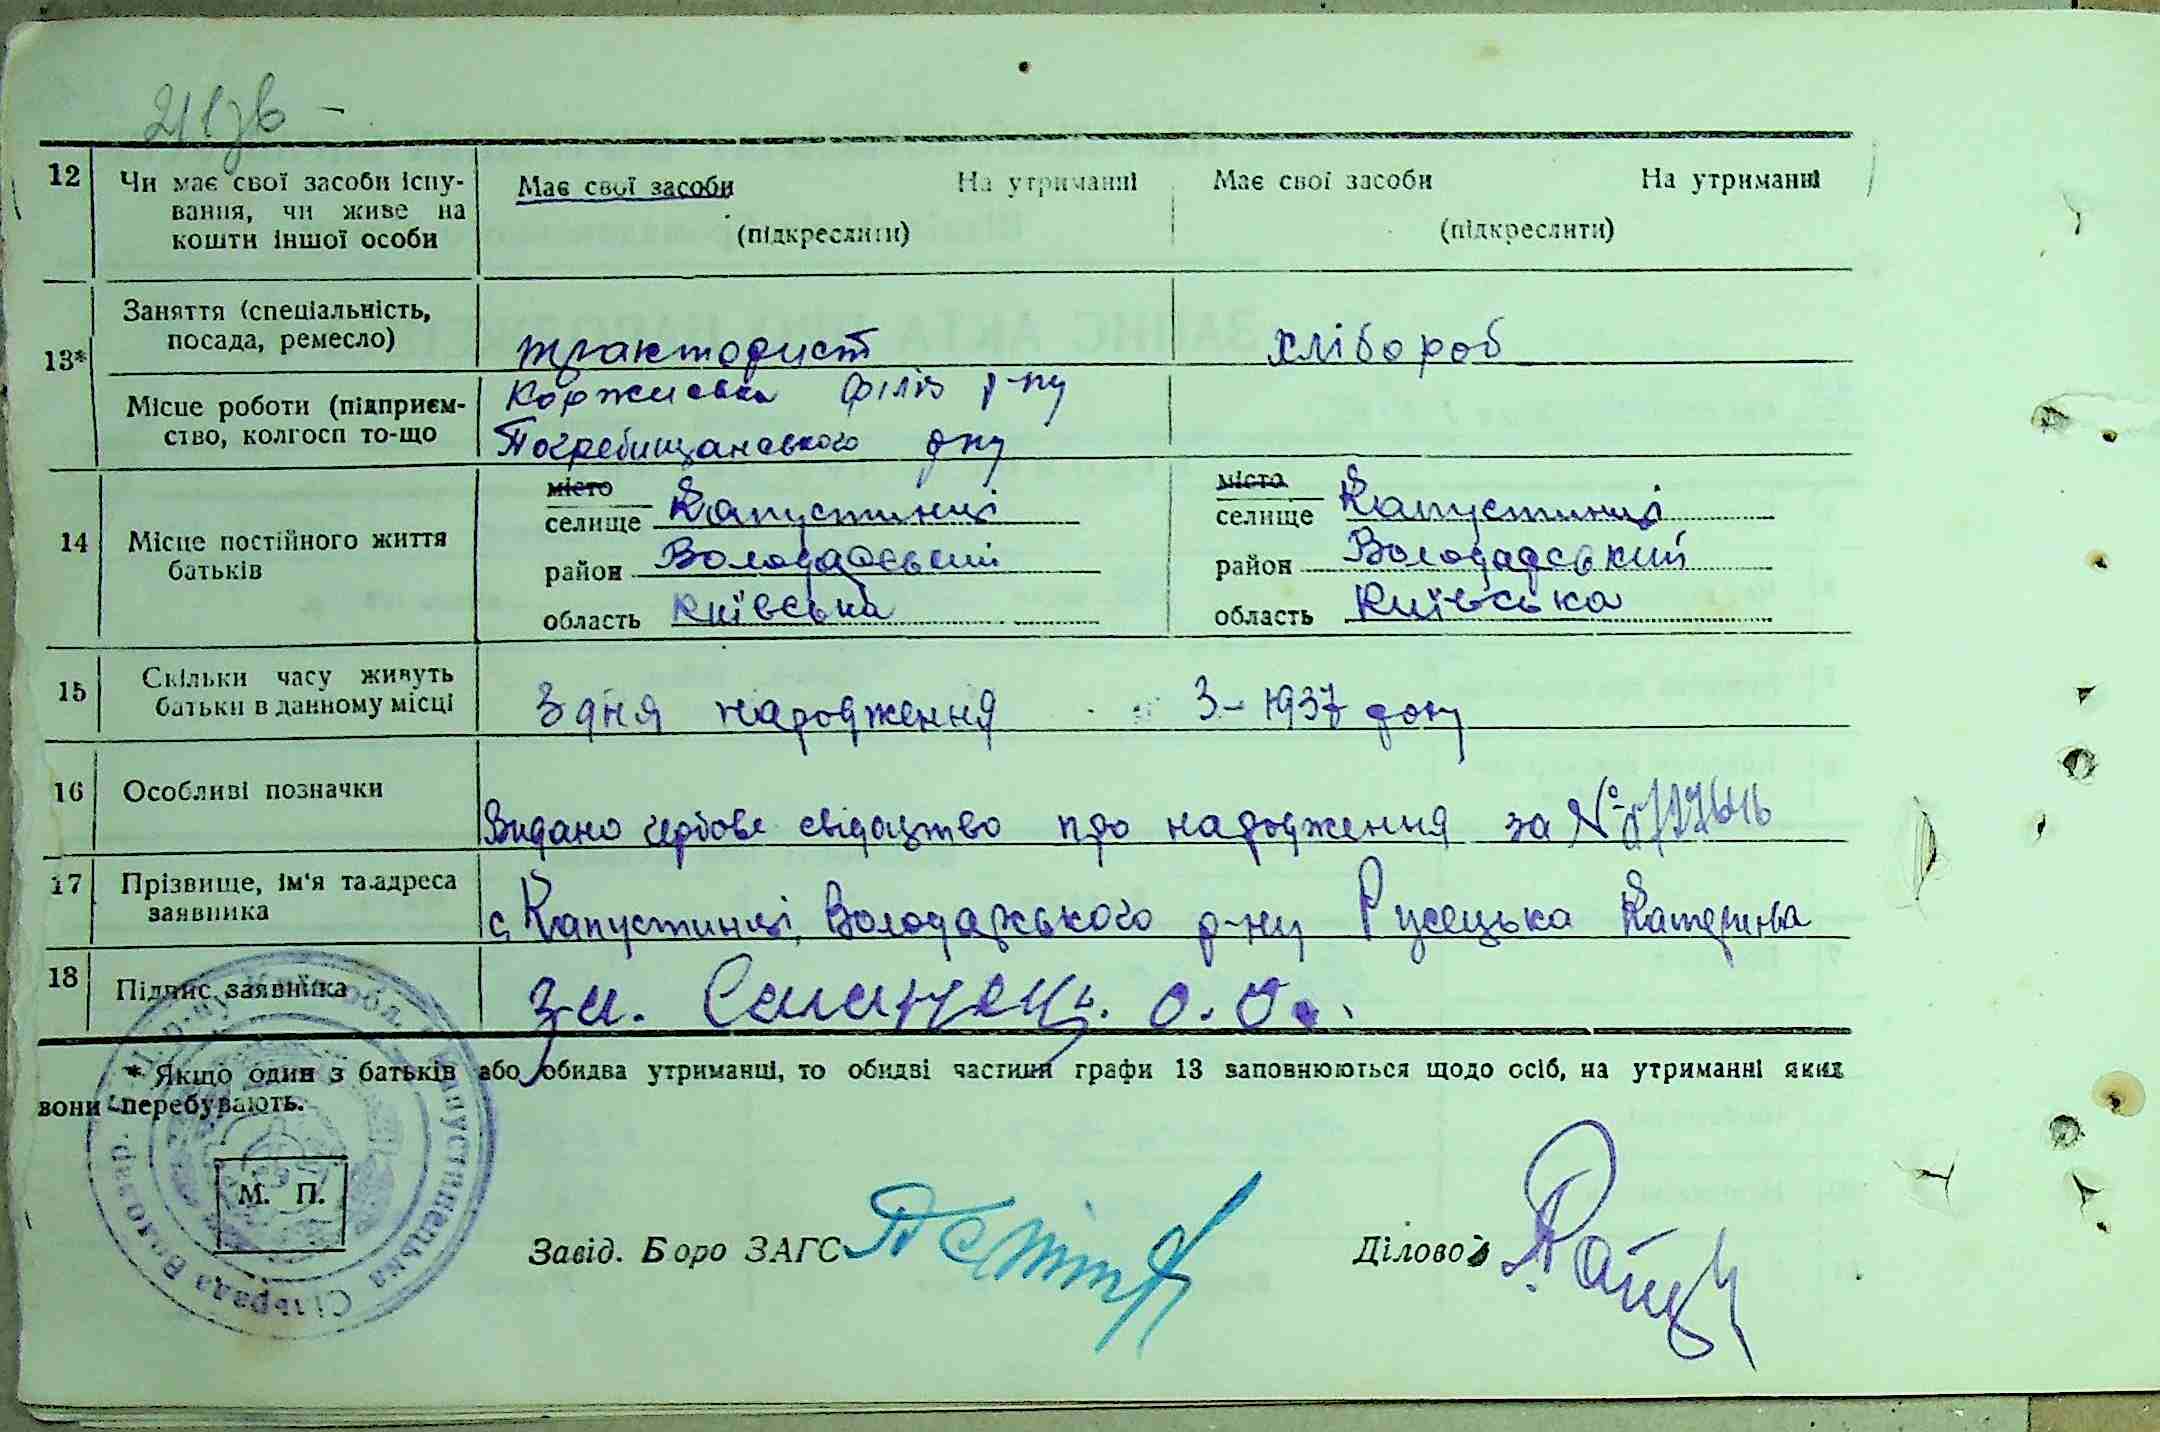 12 Чи має свої засоби існу-
вання, чи живе на
кошти іншої особи
Має свої засоби На утриманні
(підкреслити)
Має свої засоби На утриманні
(підкреслити)
13*
Заняття (спеціальність,
посада, ремесло)
тракторист
хлібороб
Місце роботи (підприєм-
ство, колгосп то-що
р-ну
Погребищанського р-ну
14 Місце постійного життя
батьків
місто
селище Капустинці
район Володарський
область Київська
місто
селище Капустинці
район Володарський
область Київська
15 Скільки часу живуть
батьки в данному місці
З дня народження
З - 1937 року
16 Особливі позначки
Видано гербове свідоцтво про народження за №
17 Прізвище, ім'я та адреса
заявника
с. Капустинці, Володарського р-ну Русецька Катерина
18 Підпис заявника
за.
* Якщо один з батьків або обидва утриманці, то обидві частини графи 13 заповнюються щодо осіб, на утриманні яких
вони перебувають.
М. П.
Капустинецька Сільрада Володар. р-ну Київ. обл.
Завід. Боро ЗАГС
Діловод